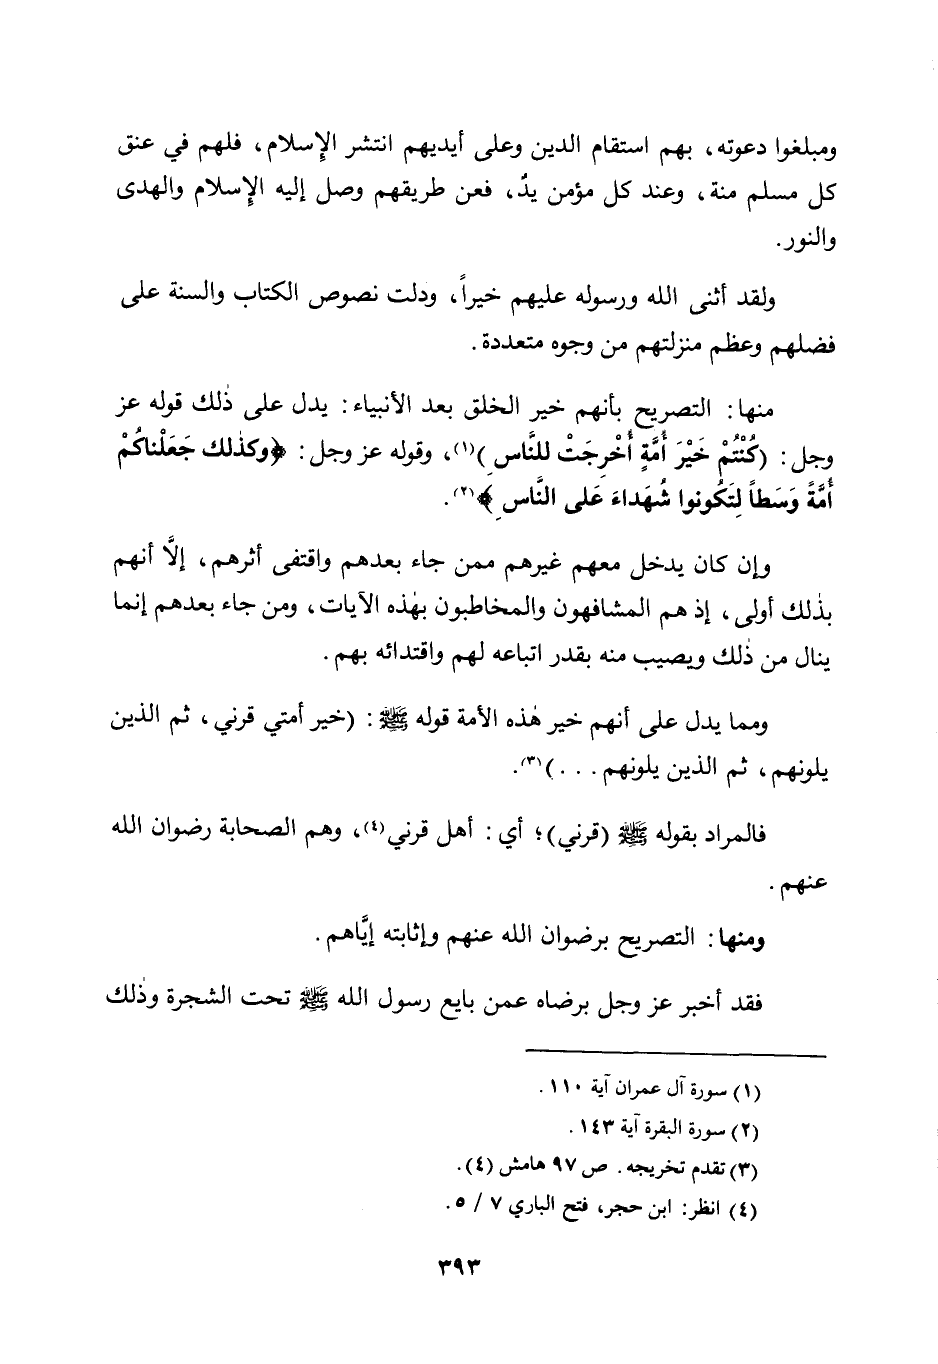 ومبلغوا دعوته، بهم استقام الدين وعلى أيديهم انتشر الإسلام، فلهم في عنق
كل مسلم منة، وعند كل مؤمن يدٌ، فعن طريقهم وصل إليه الإسلام والهدى
والنور.
ولقد أثنى الله ورسوله عليهم خيراً، ودلت نصوص الكتاب والسنة على
فضلهم وعظم منزلتهم من وجوه متعددة.
منها: التصريح بأنهم خير الخلق بعد الأنبياء: يدل على ذٰلك قوله عز
وجل: (كُنْتُمْ خَيْرَ أُمَّةٍ أُخْرِجَتْ للنَّاسِ)(١)، وقوله عز وجل: ﴿وكذٰلك جَعَلْناكُمْ
أُمَّةً وَسَطاً لِتَكُونوا شُهَداءَ عَلى النَّاسِ﴾(٢).
وإن كان يدخل معهم غيرهم ممن جاء بعدهم واقتفى أثرهم، إلَّا أنهم
بذٰلك أولى، إذ هم المشافهون والمخاطبون بهٰذه الآيات، ومن جاء بعدهم إنما
ينال من ذٰلك ويصيب منه بقدر اتباعه لهم واقتدائه بهم.
ومما يدل على أنهم خير هٰذه الأمة قوله ﷺ: (خير أمتي قرني، ثم الذين
يلونهم، ثم الذين يلونهم...)(٣).
فالمراد بقوله ﷺ (قرني)؛ أي: أهل قرني(٤)، وهم الصحابة رضوان الله
عنهم.
ومنها: التصريح برضوان الله عنهم وإثابته إيَّاهم.
فقد أخبر عز وجل برضاه عمن بايع رسول الله ﷺ تحت الشجرة وذٰلك
(١) سورة آل عمران آية ١١٠.
(٢) سورة البقرة آية ١٤٣.
(٣) تقدم تخريجه. ص ٩٧ هامش (٤).
(٤) انظر: ابن حجر، فتح الباري ٧ / ٥.
٣٩٣